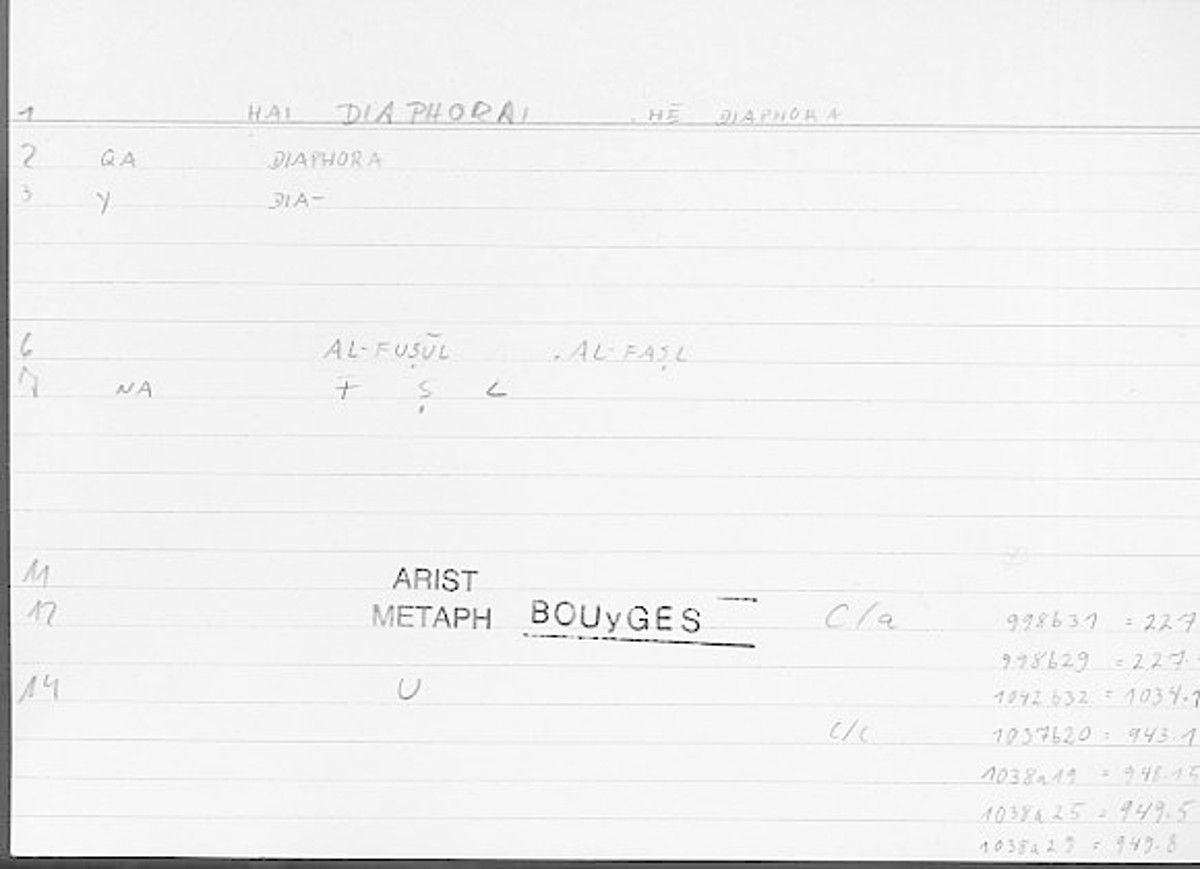 1 HAI DIAPHORAI . HĒ DIAPHORA
2 QA DIAPHORA
3 Y DIA-
6 AL-FUṢŪL . AL-FAṢL
7 NA F Ṣ L
11 ARIST
12 METAPH BOUyGES C/a 998b31 = 227
998b29 = 227.
14 U 1042b32 = 1034.1
C/c 1037b20 = 943.1
1038a19 = 948.15
1038a25 = 949.5
1038a29 = 949.8